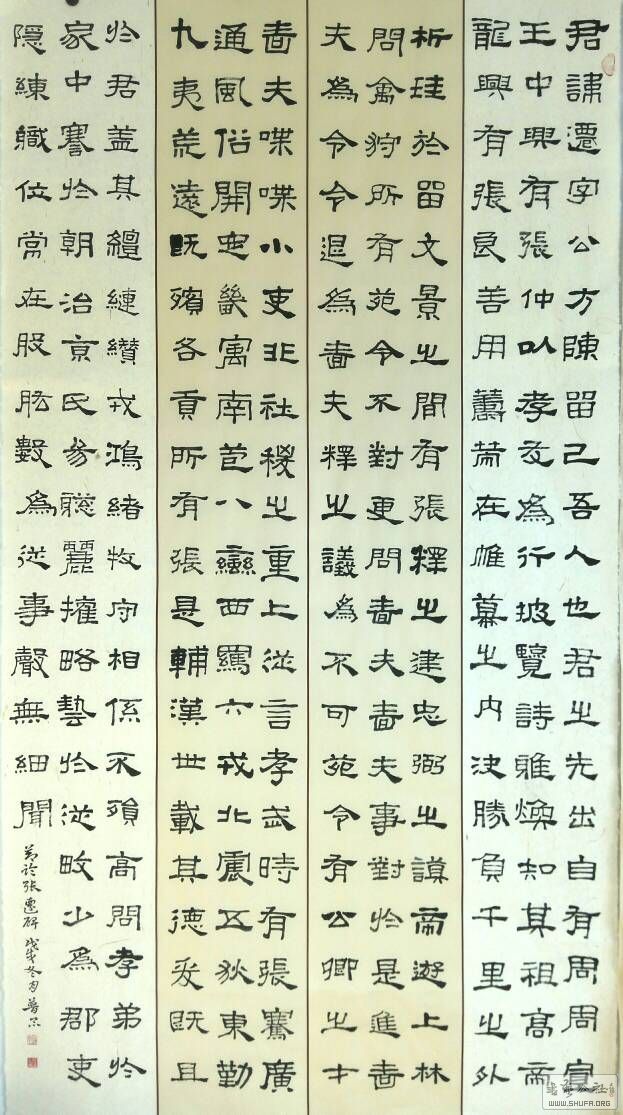 君諱遷字公方陳留己吾人也君之先出自有周周宣
王中興有張仲以孝友為行披覽詩雅煥知其祖高帝
龍興有張良善用籌策在帷幕之內決勝負千里之外
析珪於留文景之間有張釋之建忠弼之謨帝遊上林
問禽狩所有苑令不對更問嗇夫嗇夫事對於是進嗇
夫為令令退為嗇夫釋之議為不可苑令有公卿之才
嗇夫喋喋小吏非社稷之重上從言孝武時有張騫廣
通風俗開定畿寓南苞八蠻西羈六戎北震五狄東勤
九夷荒遠既殯各貢所有張是輔漢世載其德爰既且
於君蓋其繵縺纘戎鴻緒牧守相係不殞高問孝弟於
家中謇於朝治京氏易聰麗權略藝於從畋少為郡吏
隱練職位常在股肱數為從事聲無細聞
節於張遷碑 戊戌冬月
WWW.SHUFA.ORG